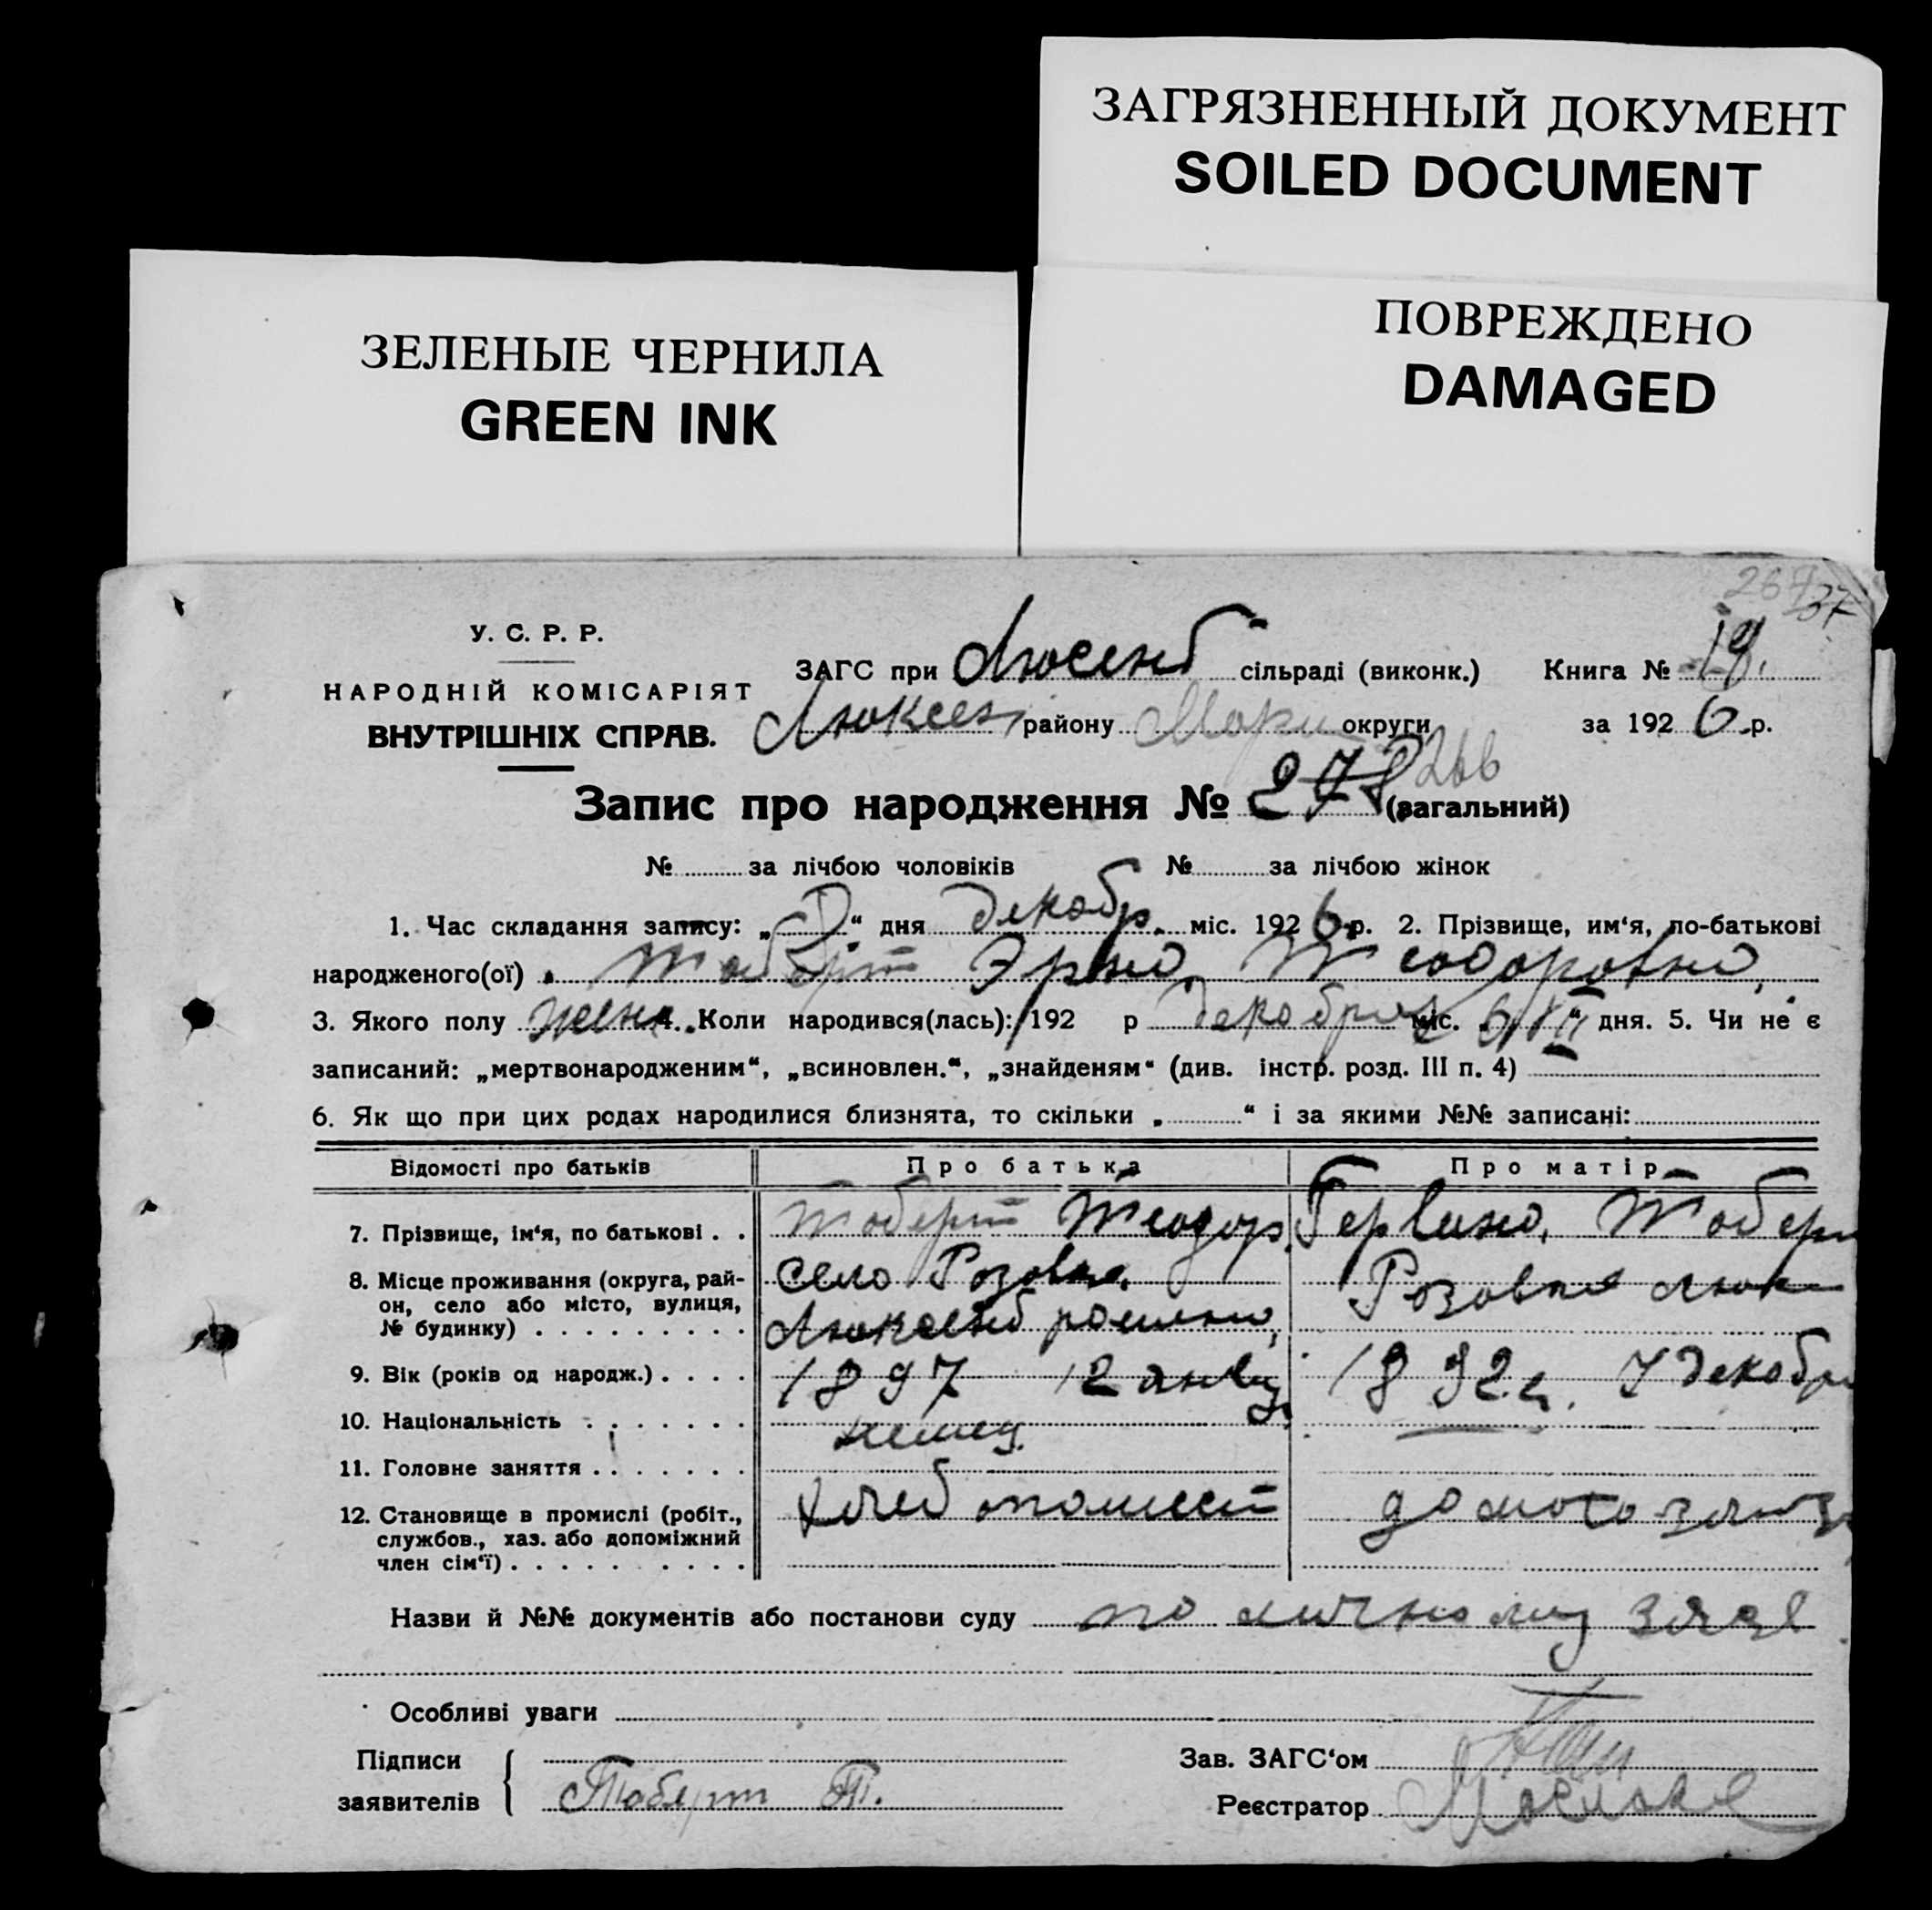 ЗАГРЯЗНЕННЫЙ ДОКУМЕНТ
SOILED DOCUMENT
ПОВРЕЖДЕНО
DAMAGED
ЗЕЛЕНЫЕ ЧЕРНИЛА
GREEN INK
37
У. С. Р. Р.
НАРОДНІЙ КОМІСАРІЯТ
ВНУТРІШНІХ СПРАВ.
ЗАГС при Люсенб сільраді (виконк.) Книга № 19.
району Мари округи за 1926 р.
Запис про народження № 278 266 (загальний)
№ за лічбою чоловіків № за лічбою жінок
1. Час складання запису: „ “ дня декабр. міс. 1926 р. 2. Прізвище, им‘я, по-батькові
народженого(ої) Таберт Эрна Теодоровна,
3. Якого полу жен. 4. Коли народився(лась): 192 р декабря міс. „ “ дня. 5. Чи не є
записаний: „мертвонародженим“, „всиновлен.“, „знайденям“ (див. інстр. розд. III п. 4)
6. Як що при цих родах народилися близнята, то скільки „ “ і за якими №№ записані:
Відомості про батьків Про батька Про матір
7. Прізвище, ім‘я, по батькові . . Таберт Теодор. Таберт
8. Місце проживання (округа, рай-он, село або місто, вулиця, № будинку) . . . . . . . . . село Розовка. Розовка Люк
9. Вік (років од народж.) . . . . 1897 12 янв 1892 г. 7 декабря
10. Національність . . . . . . . немец.
11. Головне заняття . . . . . . .
12. Становище в промислі (робіт., службов., хаз. або допоміжний член сім‘ї) . . . . . . . . . . хлебопашест домохозяй
Назви й №№ документів або постанови суду по личному заяв
Особливі уваги
Підписи заявителів { Таберт Т.
Зав. ЗАГС‘ом
Реєстратор